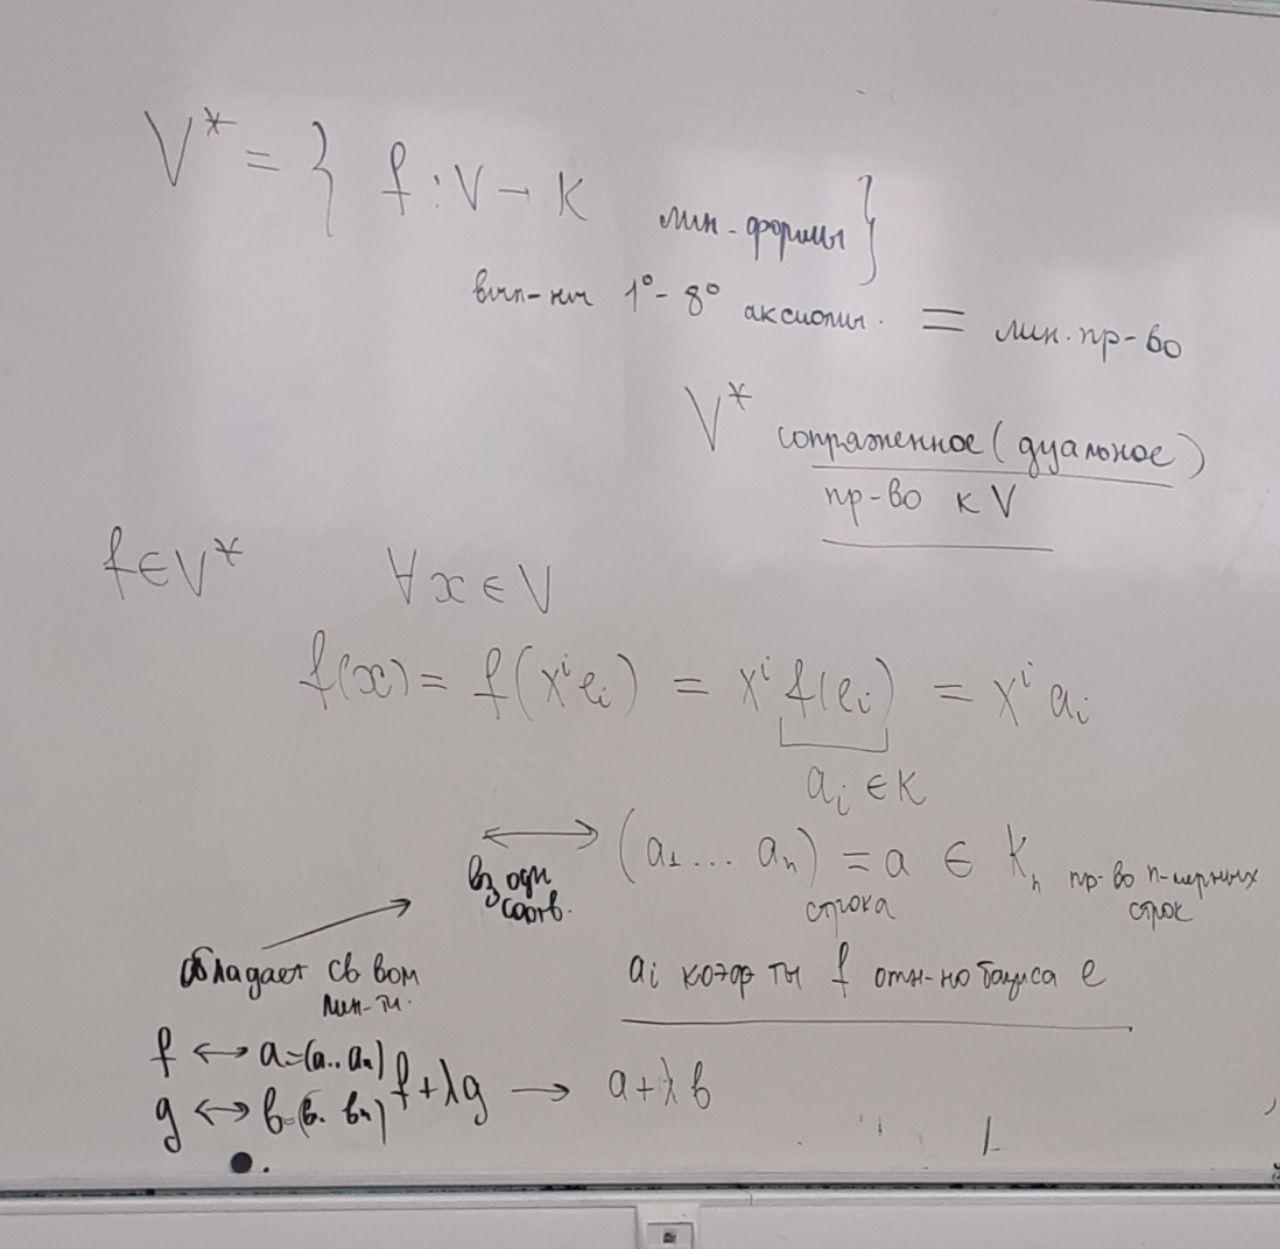 V* = { f : V → K лин. формы }
вып-ны 1° - 8° аксиомы. = лин. пр-во
V* сопряженное (дуальное)
пр-во к V
f ∈ V* ∀x ∈ V
f(x) = f(xⁱeᵢ) = xⁱ f(eᵢ) = xⁱ aᵢ
aᵢ ∈ K
⟷ (a₁ ... aₙ) = a ∈ Kₙ пр-во n-мерных
вз одн строка строк
соотв.
обладает св вом aᵢ коэфф ты f отн-но базиса e
лин-ти.
f ↔ a=(a.. aₙ) f + λg → a + λb
g ↔ b=(b. bₙ)